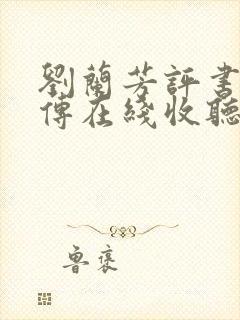 劉蘭芳評書
傳在綫收聽
魯褒